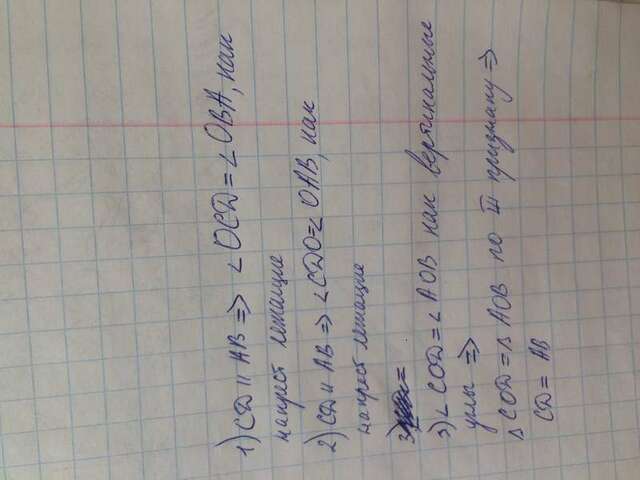 1) CD II AB => ∠OCD = ∠OBA, как
напрест лежащие
2) CD II AB => ∠CDO=∠OAB, как
напрест лежащие
3)
3) ∠COD = ∠AOB как вертикальные
углы =>
△COD = △AOB по III признаку =>
CD = AB